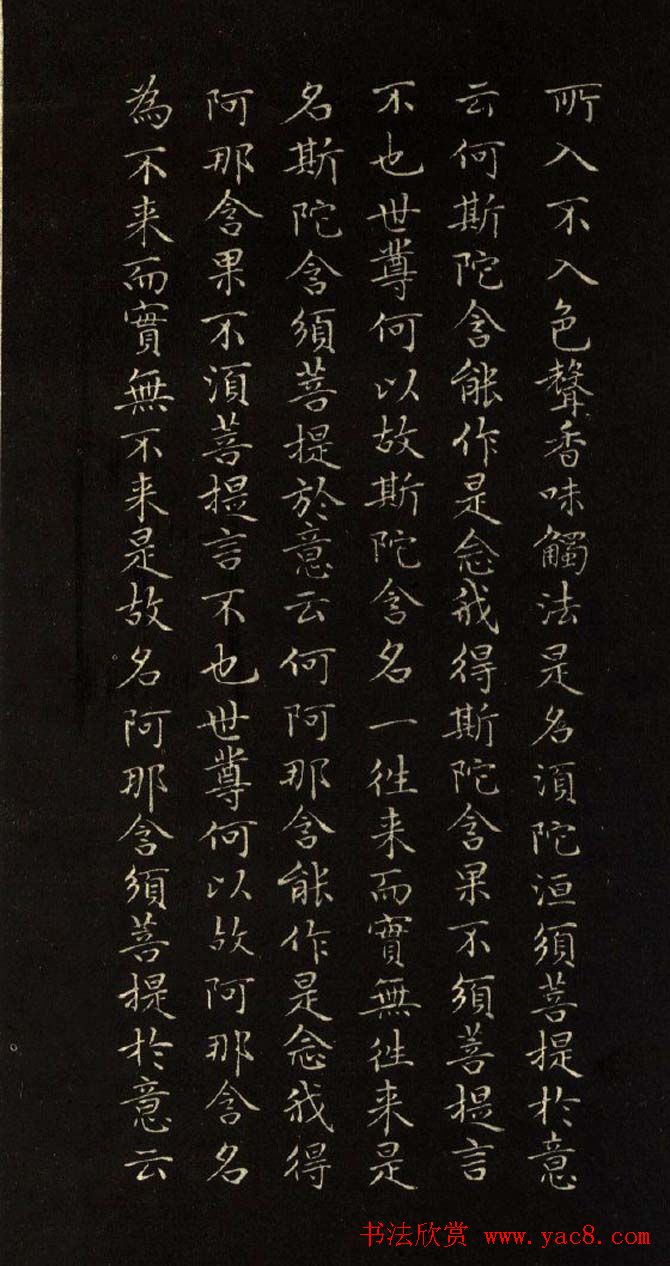 所入不入色聲香味觸法是名須陀洹須菩提於意
云何斯陀含能作是念我得斯陀含果不須菩提言
不也世尊何以故斯陀含名一往来而實無往来是
名斯陀含須菩提於意云何阿那含能作是念我得
阿那含果不須菩提言不也世尊何以故阿那含名
為不来而實無不来是故名阿那含須菩提於意云
书法欣赏 www.yac8.com